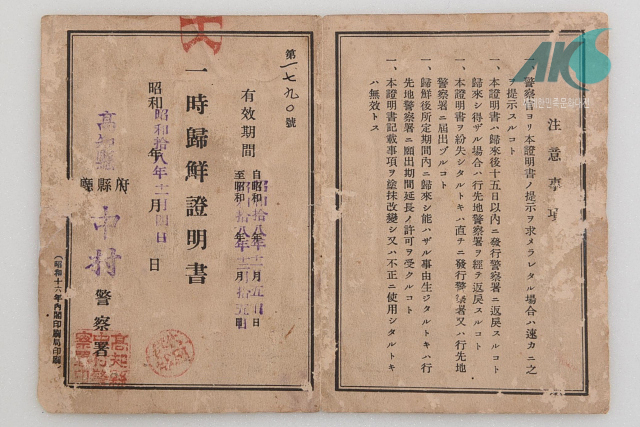 注意事項
一、警察官ヨリ本證明書ノ提示ヲ求メラレタル場合ハ速カニ之
ヲ提示スルコト
一、本證明書ハ歸來後十五日以內ニ發行警察署ニ返戾スルコト
歸來シ得ザル場合ハ行先地警察署ヲ經テ返戾スルコト
一、本證明書ヲ紛失シタルトキハ直チニ發行警察署又ハ行先地
警察署ニ届出ヅルコト
一、歸鮮後所定期間內ニ歸來シ能ハザル事由生ジタルトキハ行
先地警察署ニ願出期間延長ノ許可ヲ受クルコト
一、本證明書記載事項ヲ塗抹改變シ又ハ不正ニ使用シタルトキ
ハ無效トス
第一七九〇號
有效期間
自昭和 年 月 日
至昭和 年 月 日
一時歸鮮證明書
昭和 年 月 日
昭和拾八年
高知縣
府縣廳
中村
警察署
(昭和十六年內閣印刷局印刷)
AKS